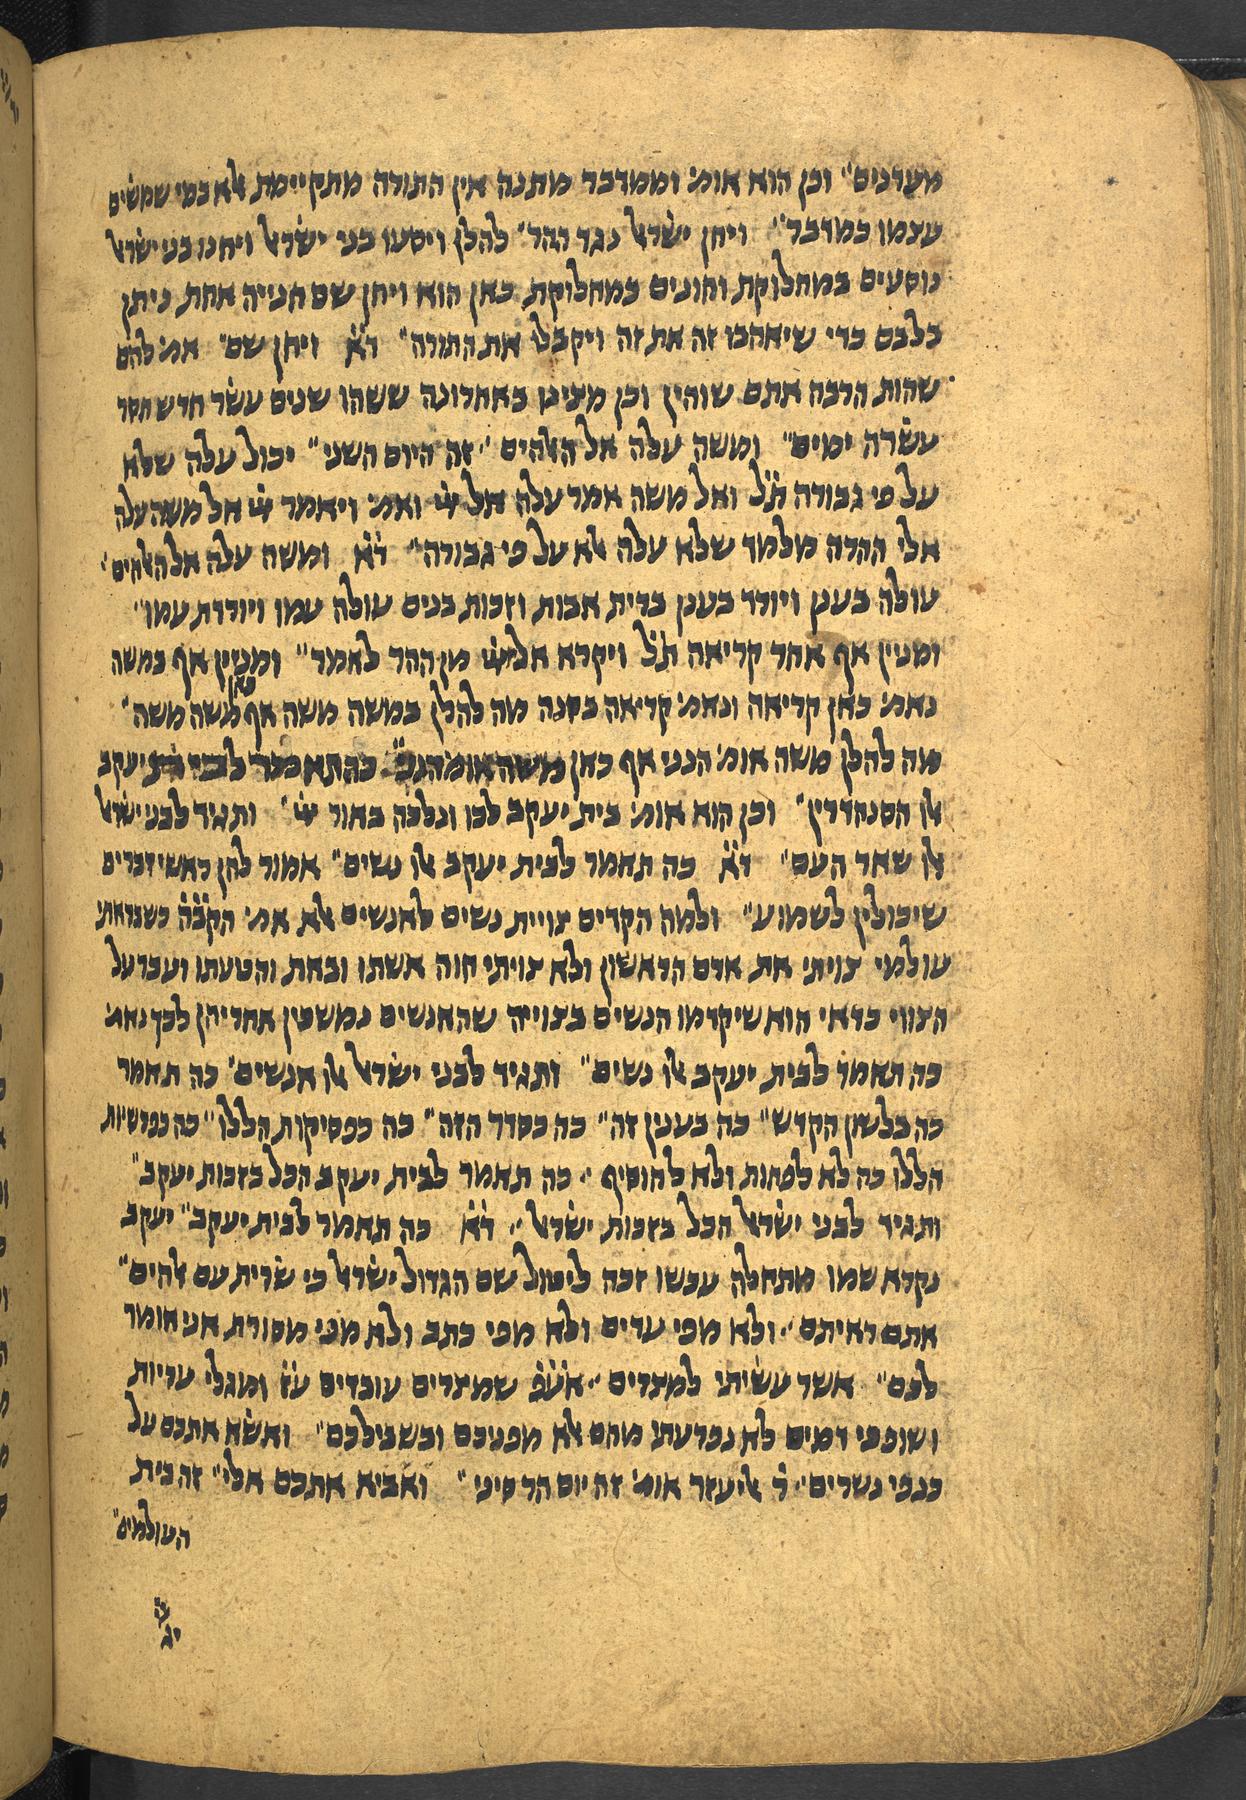 מעדנים״ וכן הוא אומ׳ וממדבר מתנה אין התורה מתקיימת אלא במי שמשים
עצמו כמדבר״ ויחן ישׂראל נגד ההר״ להלן ויסעו בני ישׂראל ויחנו בני ישׂראל
נוסעים במחלוקת וחונים במחלוקת כאן הוא ויחן שם חנייה אחת ניתן
בלבם כדי שיאהבו זה את זה ויקבלו את התורה״ ד׳א׳ ויחן שם״ אמ׳ להם
שהות הרבה אתם שוהין וכן מצינו באחרונה ששהו שנים עשׂר חדש חסר
עשׂרה ימים״ ומשה עלה אל האלהים״ זה היום השני״ יכול עלה שלא
על פי גבורה ת׳ל׳ ואל משה אמר עלה אל ייי ואמ׳ ויאמר ייי אל משה עלה
אלי ההרה מלמד שלא עלה אלא על פי גבורה״ ד׳א׳ ומשה עלה אל האלהים׳
עולה בענן ויורד בענן ברית אבות וזכות בנים עולה עמו ויורדת עמו״
ומנין אף אחר קריאה ת׳ל׳ ויקרא אליו ייי מן ההר לאמר״ ומנין אף במשה
נאמ׳ כאן קריאה ונאמ׳ קריאה בסנה מה להלן במשה משה אף כאן משה משה״
מה להלן משה אומ׳ הנני אף כאן משה אומ׳ הנני״ כה תאמר לבית יעקב
אלו הסנהדרין״ וכן הוא אומ׳ בית יעקב לכו ונלכה באור ייי״ ותגיד לבני ישׂראל
אלו שאר העם״ ד׳א׳ כה תאמר לבית יעקב אלו נשים״ אמור להן ראשי דברים
שיכולין לשמוע״ ולמה הקדים צויית נשים לאנשים אלא אמ׳ הקב׳ה׳ כשבראתי
עולמי צויתי את אדם הראשון ולא צויתי חוה אשתו ובאת והטעתו ועבר על
הצווי כדאי הוא שיקדמו הנשים בצוייה שהאנשים נמשכין אחריהן לכך נאמ׳
כה תאמר לבית יעקב אלו נשים״ ותגיד לבני ישׂראל אלו אנשים״ כה תאמר
כה בלשון הקדש״ כה בענין זה״ כה בסדר הזה״ כה בפסיקות הללו״ כה בפרשיות
הללו כה לא לפחות ולא להוסיף״ כה תאמר לבית יעקב הכל בזכות יעקב״
ותגיד לבני ישׂראל הכל בזכות ישׂראל״ ד׳א׳ כה תאמר לבית יעקב״ יעקב
נקרא שמו מתחלה עכשו זכה ליטול שם הגדול ישׂראל כי שׂרית עם אלהים״
אתם ראיתם״ ולא מפי עדים ולא מפי כתב ולא מפי מסורת אני אומר
לכם״ אשר עשׂיתי למצרים״ אע׳פ׳ שמצרים עובדים ע׳ז׳ ומגלי עריות
ושופכי דמים לא נפרעתי מהם אלא מפניכם ובשבילכם״ ואשׂא אתכם על
כנפי נשרים״ ר׳ אליעזר אומ׳ זה יום הר סיני״ ואביא אתכם אלי״ זה בית
העולמים״